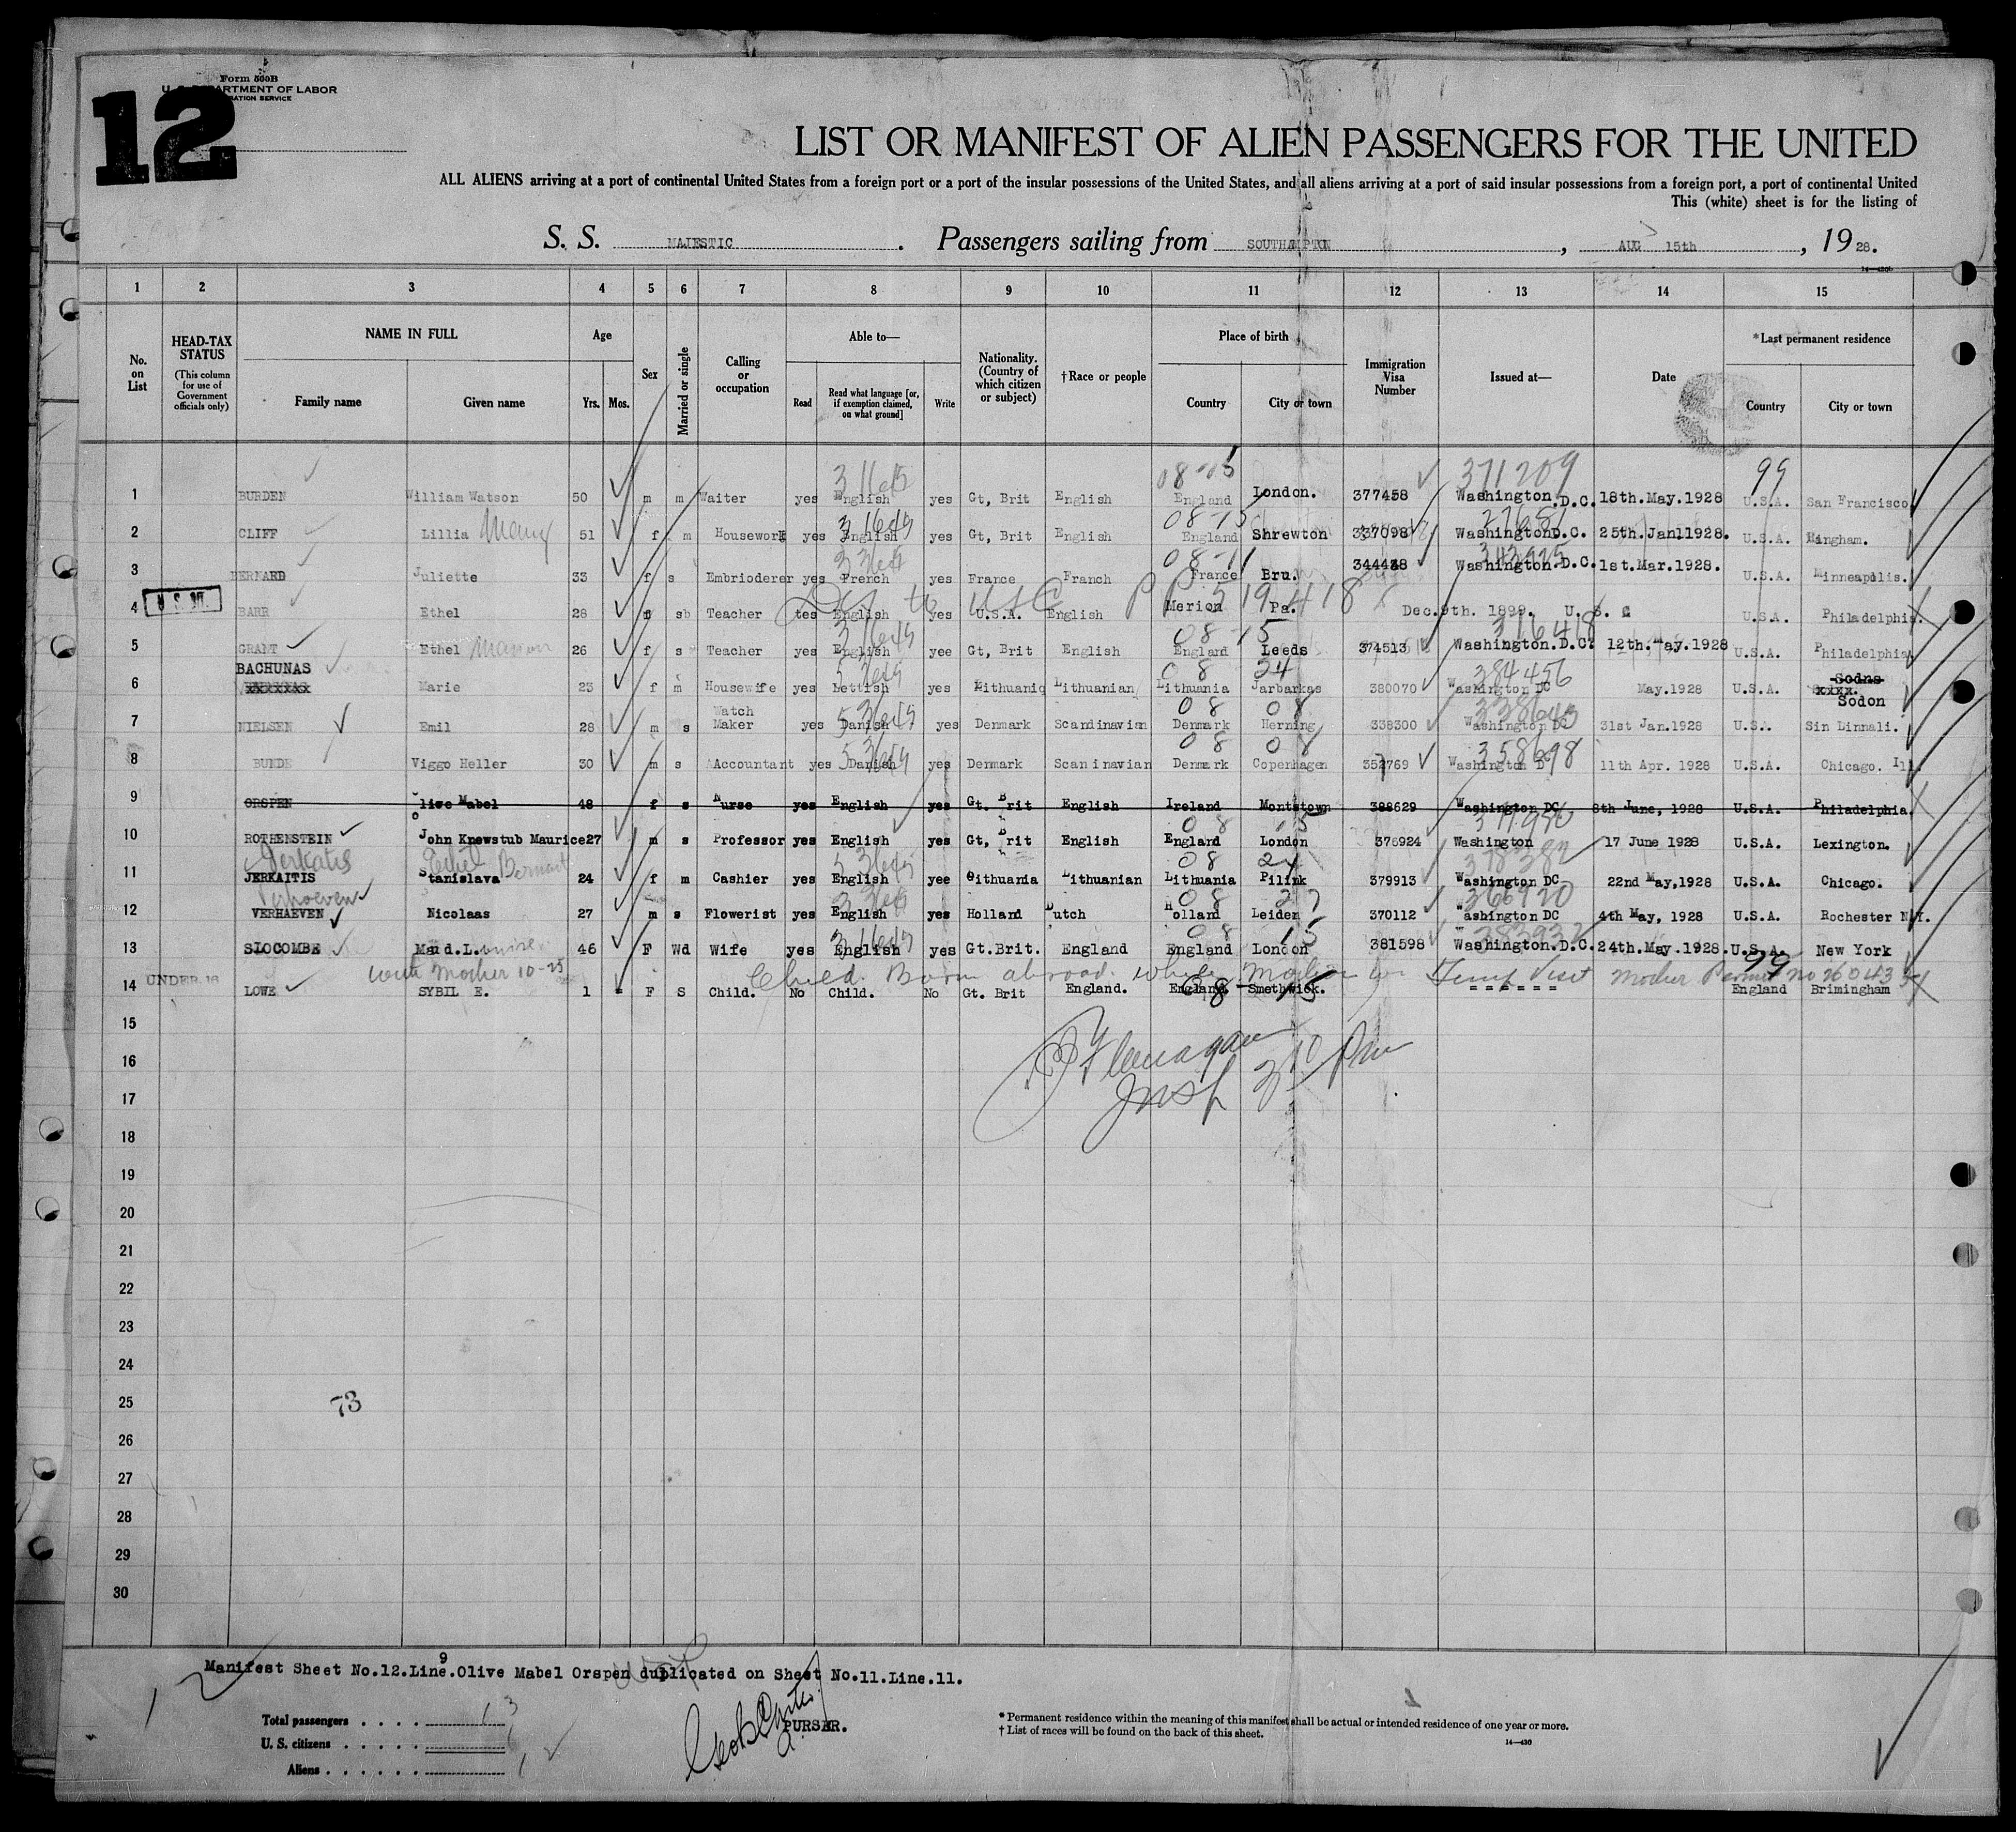 Form 500B
U. S. DEPARTMENT OF LABOR
IMMIGRATION SERVICE
12
LIST OR MANIFEST OF ALIEN PASSENGERS FOR THE UNITED
ALL ALIENS arriving at a port of continental United States from a foreign port or a port of the insular possessions of the United States, and all aliens arriving at a port of said insular possessions from a foreign port, a port of continental United
This (white) sheet is for the listing of
S. S. MAJESTIC . Passengers sailing from SOUTHAMPTON , AUG 15th , 19 28.
1 2 3 4 5 6 7 8 9 10 11 12 13 14 15
No. on List
HEAD-TAX STATUS (This column for use of Government officials only)
NAME IN FULL Family name Given name
Age Yrs. Mos.
Sex
Married or single
Calling or occupation
Able to— Read Read what language [or, if exemption claimed, on what ground] Write
Nationality. (Country of which citizen or subject)
†Race or people
Place of birth Country City or town
Immigration Visa Number
Issued at—
Date
*Last permanent residence Country City or town
08-15 371209 99
1 BURDEN William Watson 50 m m Waiter yes English yes Gt, Brit English England London. 377458 Washington.D.C. 18th.May.1928 U.S.A. San Francisco
08-15
2 CLIFF Lillia Mary 51 f m Housework yes English yes Gt, Brit English England Shrewton 337098 Washington D.C. 25th.Jan.1928. U.S.A. Hingham.
08-11
3 BERNARD Juliette 33 f s Embrioderer yes French yes France Franch France Bru. 344448 Washington.D.C. 1st.Mar.1928. U.S.A. Minneapolis.
4 BARR Ethel 28 f sb Teacher tes English yes U.S.A. English Merion Pa. Dec.9th. 1899. U. S. U.S.A. Philadelphia.
USC PP 519418
08-15 316418
5 GRANT Ethel Marion 26 f s Teacher yes English yee Gt, Brit English England Leeds 374513 Washington.D.C. 12th.May.1928 U.S.A. Philadelphia
BACHUNAS
08 24 384456 Sodns
6 xxxxxxx Marie 23 f m Housewife yes Lettish yes Lithuania Lithuanian Lithuania Jarbarkas 380070 Washington DC May.1928 U.S.A. xxxx. Sodon
08 08
7 NIELSEN Emil 28 m s Watch Maker yes Danish yes Denmark Scandinavian Denmark Herning 338300 Washington DC 31st Jan.1928 U.S.. Sin Linnali.
08 08 358698
8 BUNDE Viggo Heller 30 m s Accountant yes Danish yes Denmark Scaninavian Denmark Copenhagen 352769 Washington D 11th Apr. 1928 U.S.A. Chicago. Il.
9 ORSPEN Olive Mabel 48 f s Nurse yes English yes Gt. Brit English Ireland Montstown 388629 Washington DC 8th June, 1928 U.S.A. Philadelphia.
08 15
10 ROTHENSTEIN John Knewstub Maurice 27 m s Professor yes English yes Gt, Brit English England London 376924 Washington 17 June 1928 U.S.A. Lexington.
08 24 378382
11 JERKAITIS Stanislava 24 f m Cashier yes English yee Lithuania Lithuanian Lithuania Pilink 379913 Washington DC 22nd May,1928 U.S.A. Chicago.
Verhoeven 08 27 366920
12 VERHAEVEN Nicolaas 27 m s Flowerist yes English yes Holland Dutch Holland Leiden 370112 Washington DC 4th May, 1928 U.S.A. Rochester N.Y.
08 15 383932
13 SLOCOMBE Maud.Louise 46 F Wd Wife yes English yes Gt.Brit. England England London 381598 Washington.D.C. 24th.May.1928. U.S.A. New York
UNDER 16 with Mother 10-25 Child Born abroad while Mother on Temp Visit Mother Permit No 260435
14 LOWE SYBIL E. 1 - F S Child. No Child. No Gt. Brit England. England. Smethwick. ------ England Brimingham
08-15 99
15
16
Flanagan
Insp 3 10 Pm
17
18
19
20
21
22
23
24
25
73
26
27
28
29
30
Manifest Sheet No.12.Line 9.Olive Mabel Orspen duplicated on Sheet No.11.Line.11.
Total passengers . . . . 13
U. S. citizens . . . . .
Aliens . . . . . .
PURSER.
* Permanent residence within the meaning of this manifest shall be actual or intended residence of one year or more.
† List of races will be found on the back of this sheet.
14—430